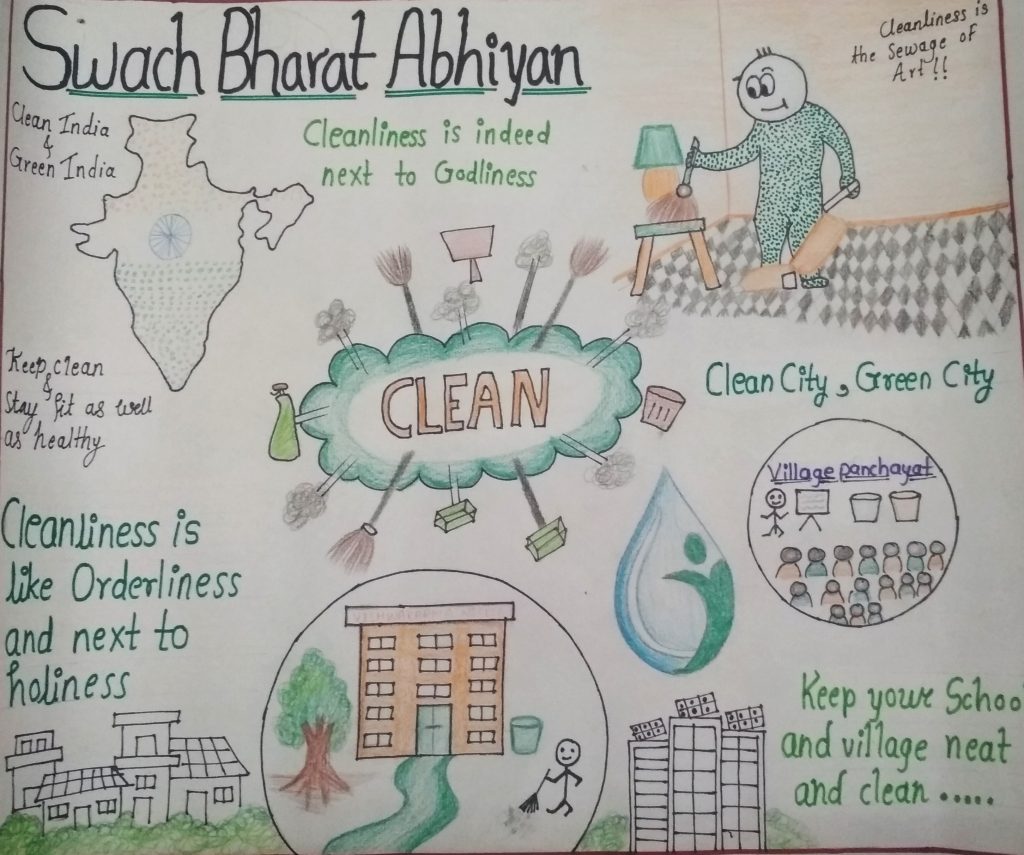 Swach Bharat Abhiyan
Cleanliness is
the Sewage of
Art!!
Clean India
&
Green India
Cleanliness is indeed
next to Godliness
Keep clean
&
Stay fit as well
as healthy
CLEAN
Clean City, Green City
Village panchayat
Cleanliness is
like Orderliness
and next to
holiness
Keep your Schoo
and village neat
and clean .....